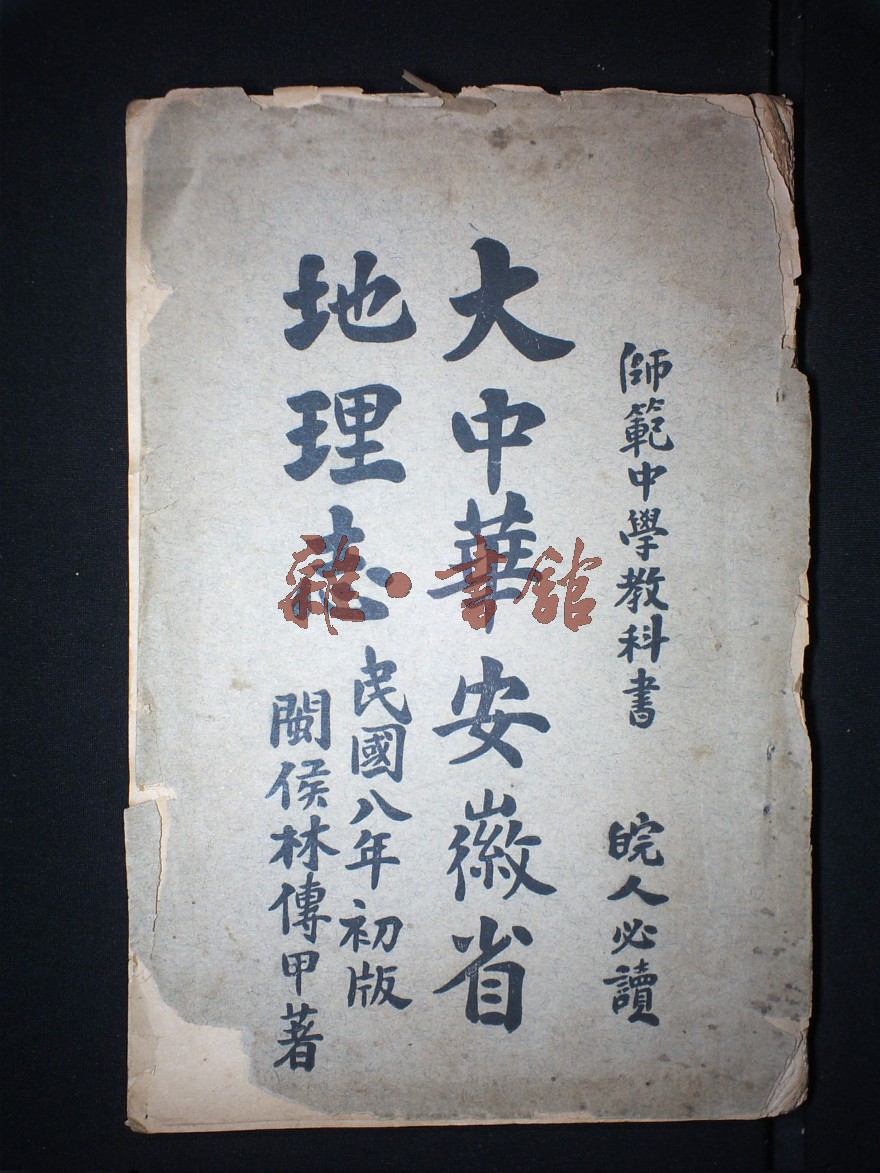 師範中學教科書 皖人必讀
大中華安徽省
地理志
民國八年初版
閩侯林傳甲著
雜·書館